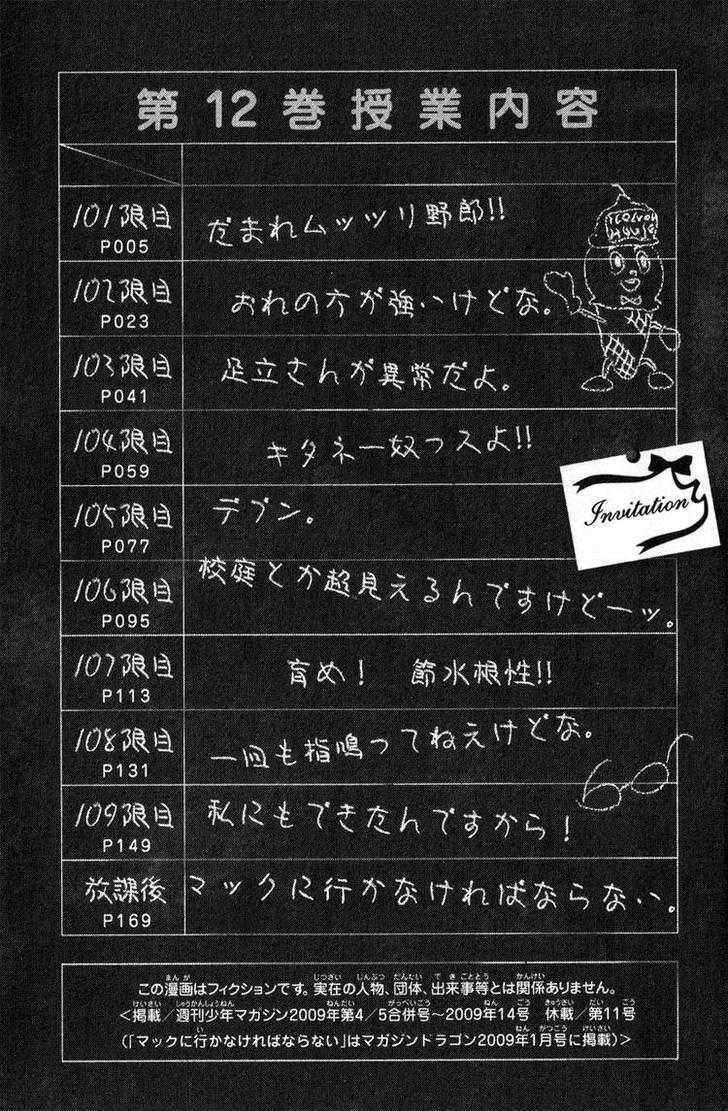 第12巻授業内容
101限目 だまれムッツリ野郎!!
P005
102限目 おれの方が強いけどな。
P023
103限目 足立さんが異常だよ。
P041
104限目 キタネー奴っスよ!!
P059
105限目 デブン。
P077
106限目 校庭とか超見えるんですけどーッ。
P095
107限目 育め! 節水根性!!
P113
108限目 一回も指鳴ってねえけどな。
P131
109限目 私にもできたんですから!
P149
放課後 マックに行かなければならない。
P169
Invitation
この漫画はフィクションです。実在の人物、団体、出来事等とは関係ありません。
<掲載/週刊少年マガジン2009年第4/5合併号~2009年14号 休載/第11号
(「マックに行かなければならない」はマガジンドラゴン2009年1月号に掲載)>